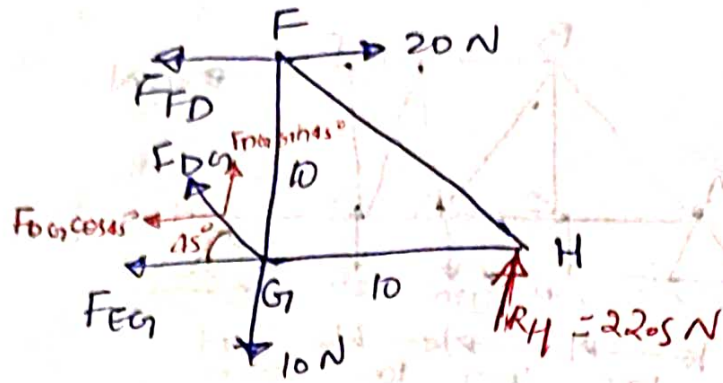 F
20 N
F_FD
F_DG F_DG sin45°
10
F_DG cos45°
45°
H
F_EG
G
10
R_H = 22.5 N
10 N